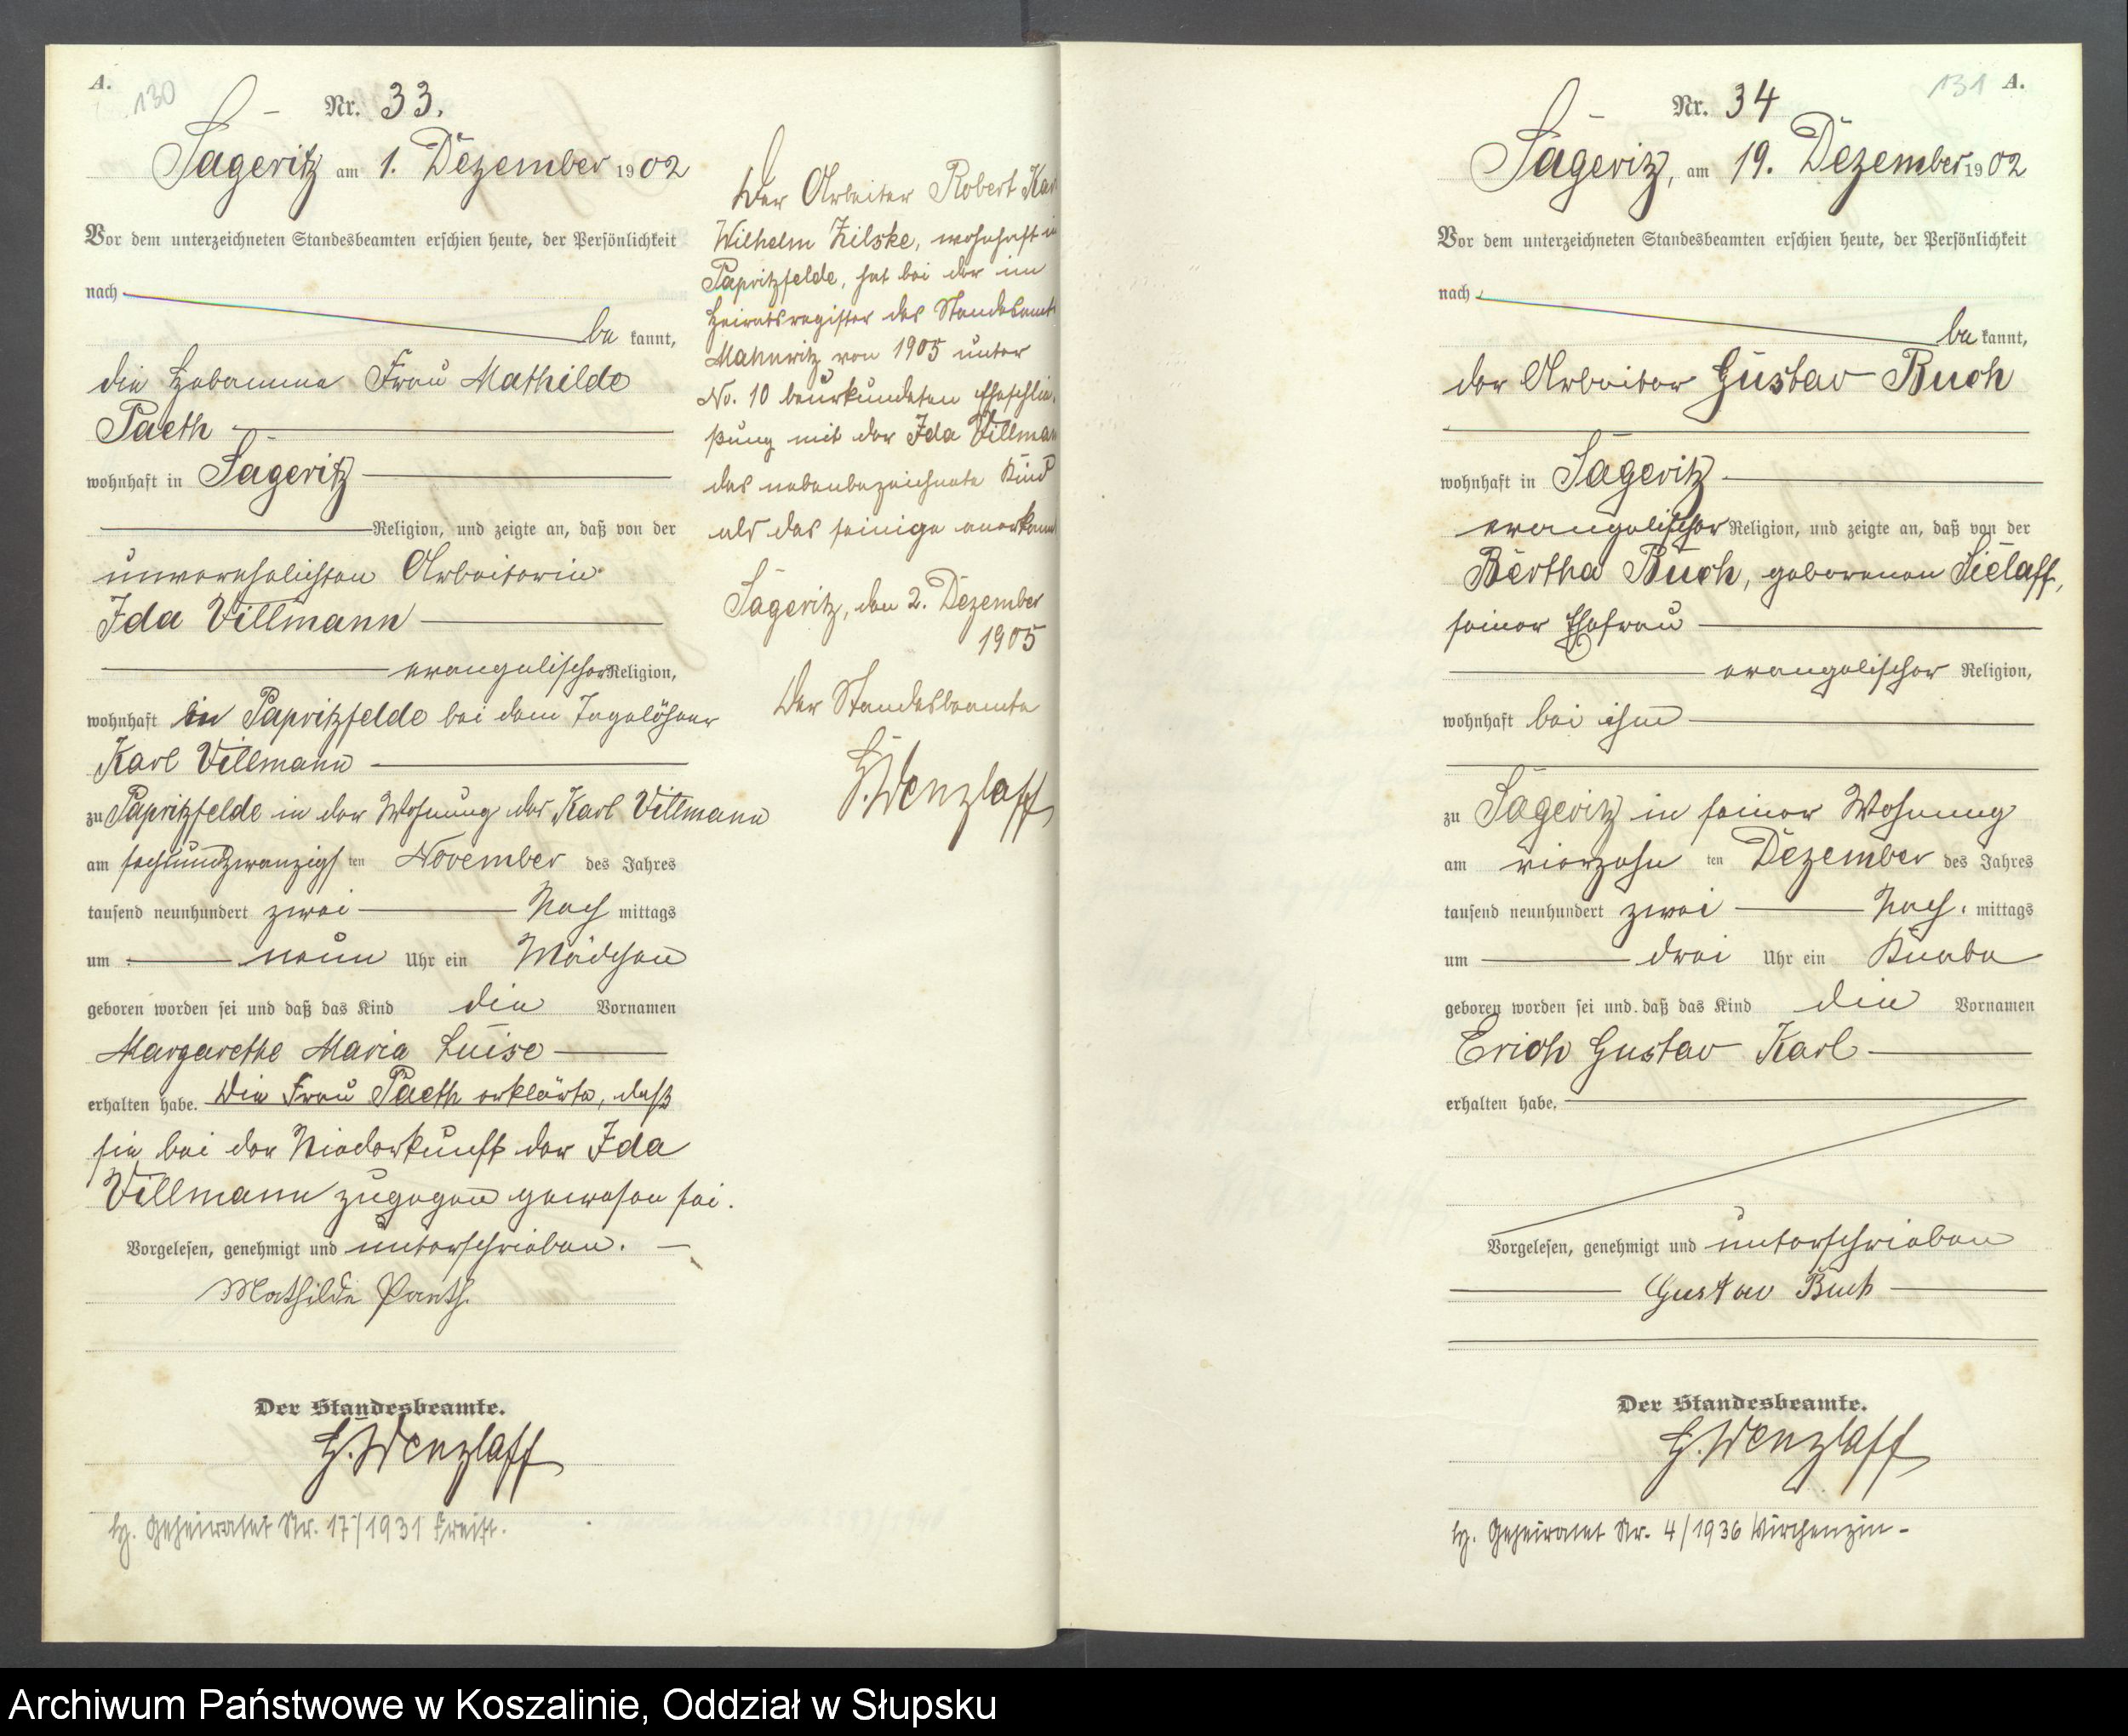 A.
130
Nr. 33.
Sageritz am 1. Dezember 1902
Vor dem unterzeichneten Standesbeamten erschien heute, der Persönlichkeit
nach
be kannt,
die Hebamme Frau Mathilde
Paeth
wohnhaft in Sageritz
Religion, und zeigte an, daß von der
unverehelichten Arbeiterin
Ida Villmann
evangelischer Religion,
wohnhaft in Papritzfelde bei dem Tagelöhner
Karl Villmann
zu Papritzfelde in der Wohnung des Karl Villmann
am sechsundzwanzigs ten November des Jahres
tausend neunhundert zwei Nach mittags
um neun Uhr ein Mädchen
geboren worden sei und daß das Kind die Vornamen
Margarethe Maria Luise
erhalten habe. Die Frau Paeth erklärte, daß
sie bei der Niederkunft der Ida
Villmann zugegen gewesen sei.
Vorgelesen, genehmigt und unterschrieben.
Mathilde Paeth.
Der Standesbeamte.
H. Wenzlaff
Geheiratet Nr. 17/1931 Freist.
Der Arbeiter Robert Kar
Wilhelm Zilske, wohnhaft in
Papritzfelde, hat bei der im
Heiratsregister des Standesamts
Mahnwitz von 1905 unter
No. 10 beurkundeten Eheschlie-
ßung mit der Ida Villman
das nebenbezeichnete Kind
als das seinige anerkann
Sageritz, den 2. Dezember
1905
Der Standesbeamte
H. Wenzlaff
131 A.
Nr. 34
Sageritz, am 19. Dezember 1902
Vor dem unterzeichneten Standesbeamten erschien heute, der Persönlichkeit
nach
be kannt,
der Arbeiter Gustav Buch
wohnhaft in Sageritz
evangelischer Religion, und zeigte an, daß von der
Bertha Buch, geborenen Sielaff,
seiner Ehefrau
evangelischer Religion,
wohnhaft bei ihm
zu Sageritz in seiner Wohnung
am vierzehn ten Dezember des Jahres
tausend neunhundert zwei Nach. mittags
um drei Uhr ein Knabe
geboren worden sei und daß das Kind die Vornamen
Erich Gustav Karl
erhalten habe.
Vorgelesen, genehmigt und unterschrieben
Gustav Buch
Der Standesbeamte.
H. Wenzlaff
Geheiratet Nr. 4/1936
Archiwum Państwowe w Koszalinie, Oddział w Słupsku